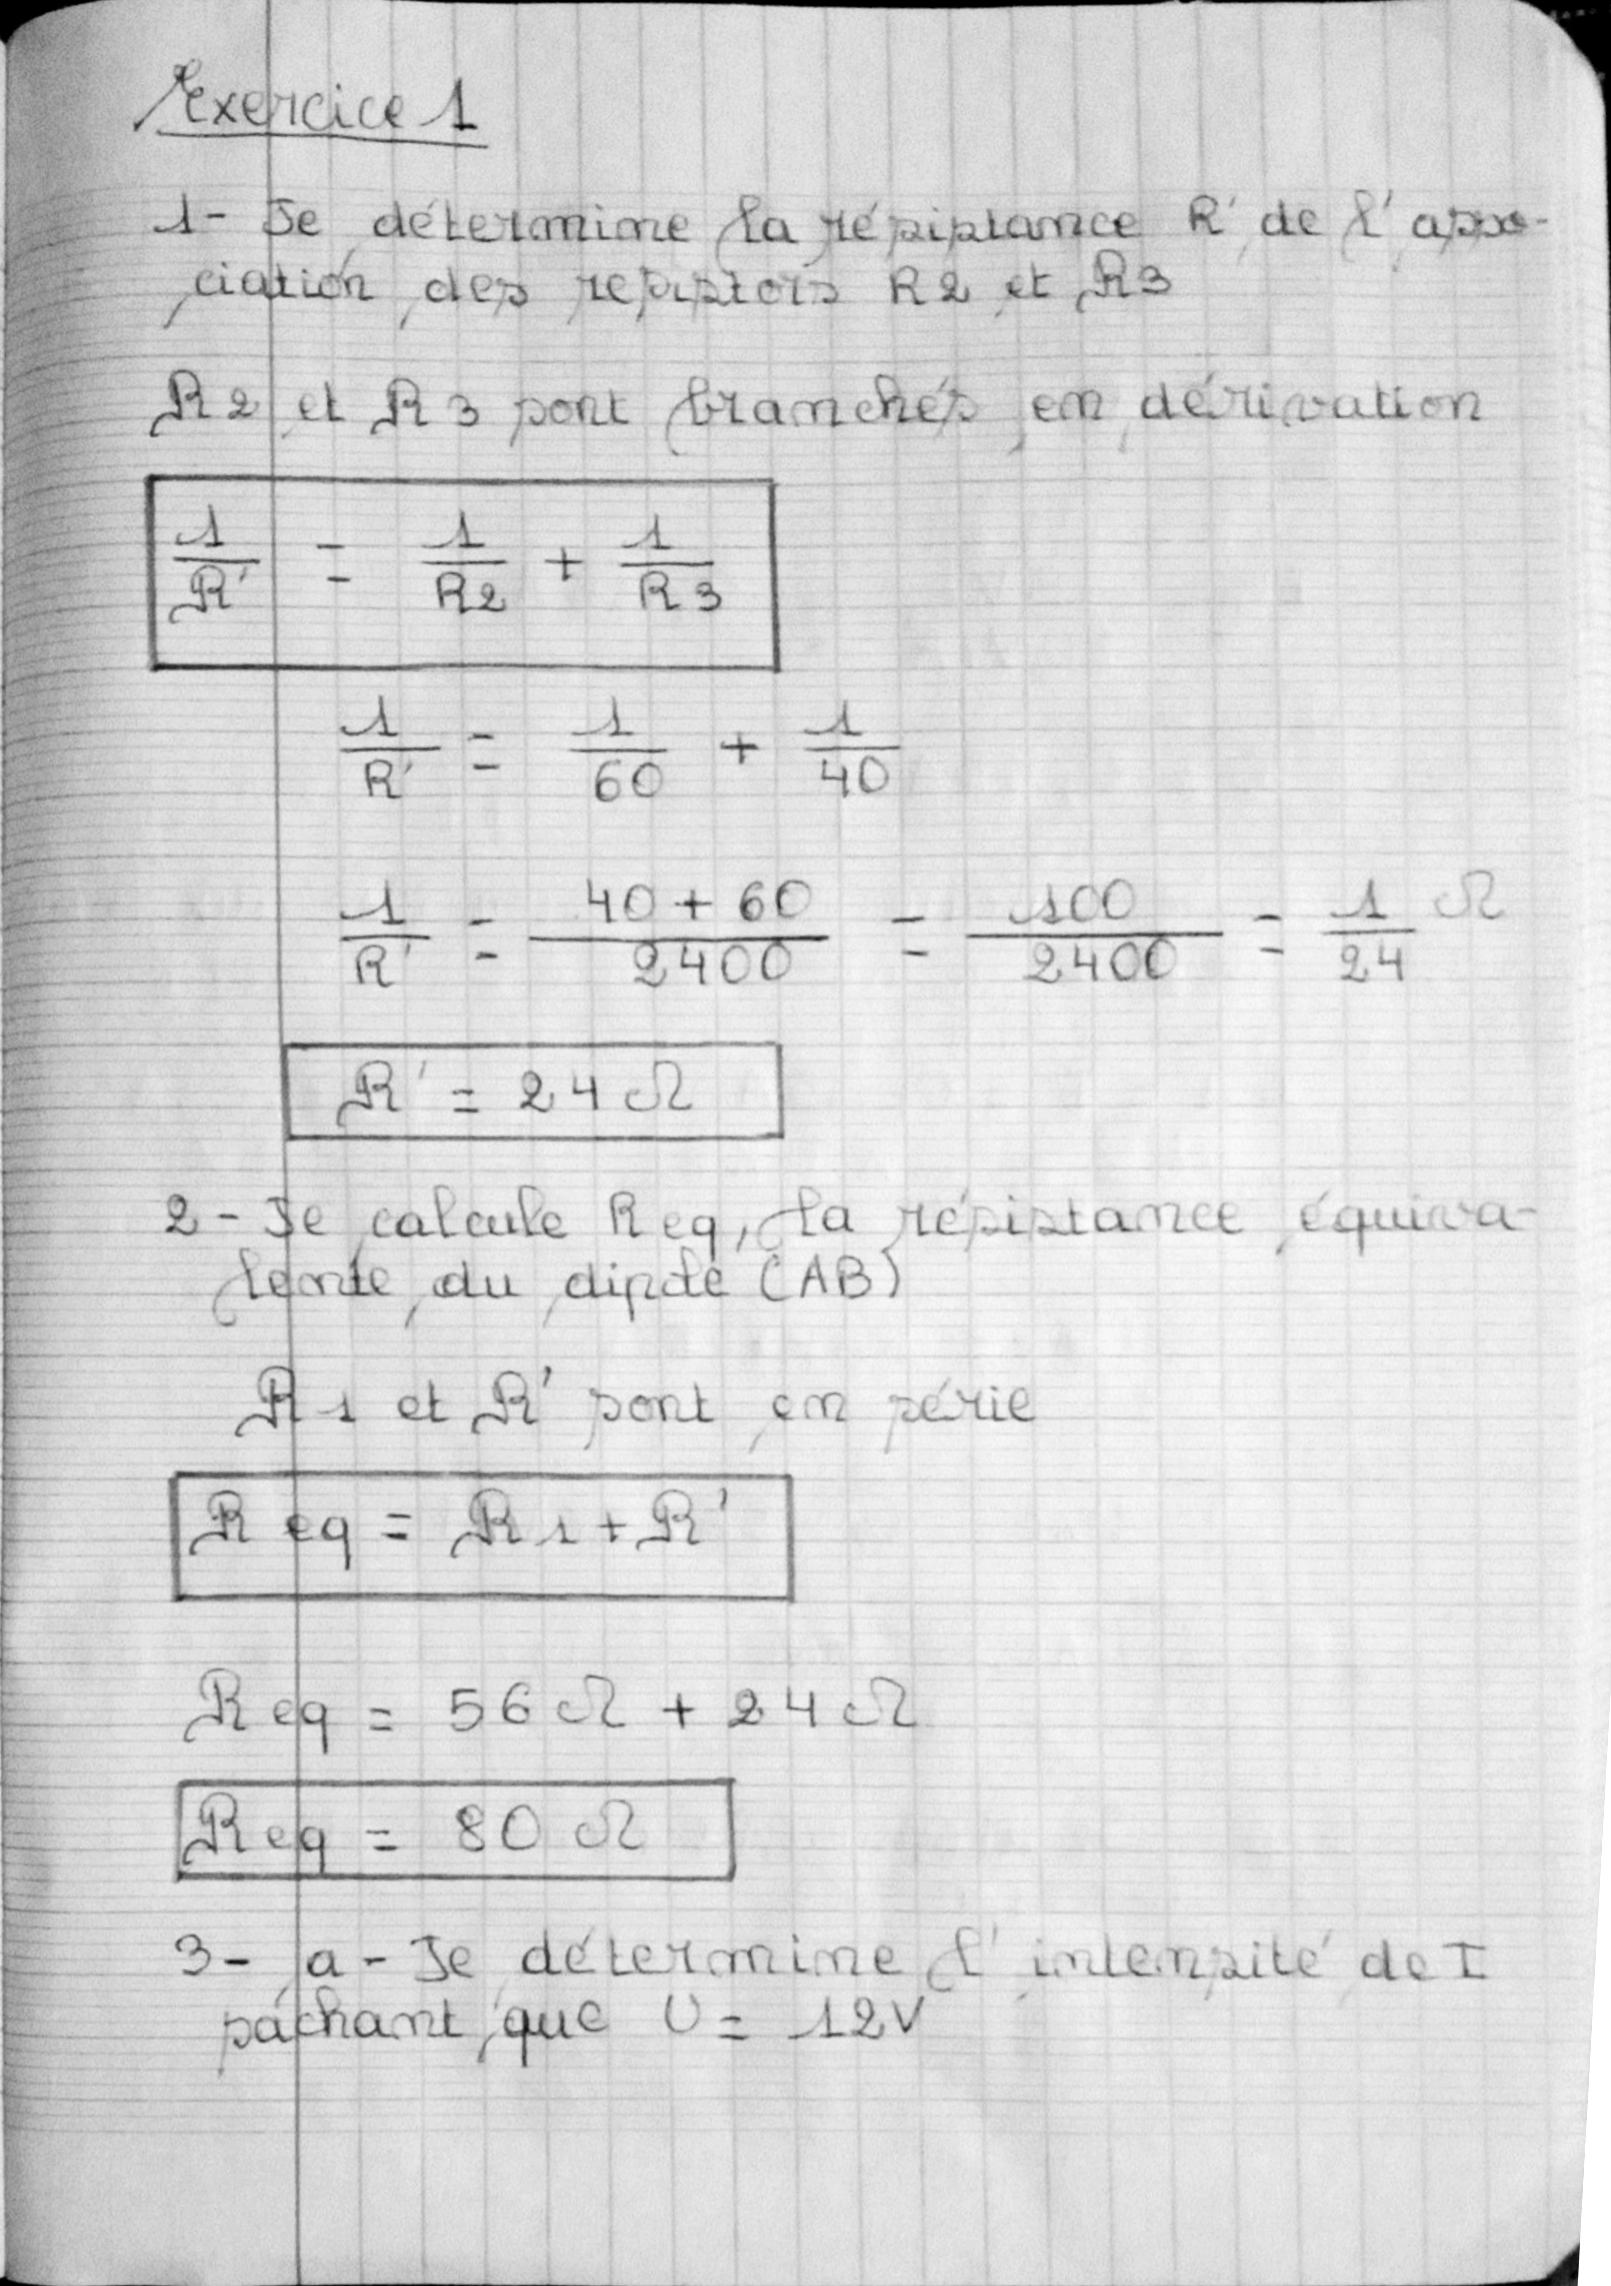 Exercice 1
1- Je détermine la résistance R' de l'asso-
ciation des resistors R2 et R3
R2 et R3 sont branchés en dérivation
1/R' = 1/R2 + 1/R3
1/R' = 1/60 + 1/40
1/R' = 40 + 60/2400 = 100/2400 = 1/24 Ω
R' = 24 Ω
2- Je calcule Req, la résistance équiva-
lente du dipole (AB)
R1 et R' sont en série
Req = R1 + R'
Req = 56 Ω + 24 Ω
Req = 80 Ω
3- a- Je détermine l'intensité de I
sachant que U = 12V